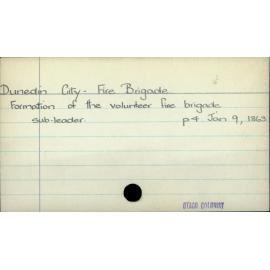 Dunedin City - Fire Brigade
Formation of the volunteer fire brigade
sub-leader. p4 Jan 9, 1863
OTAGO COLONIST